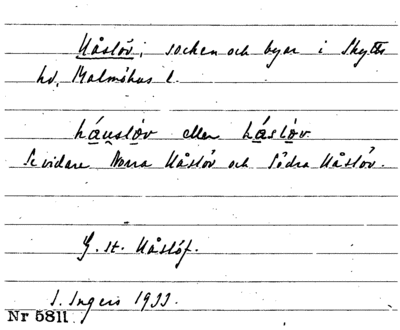 Håslöv; socken och byar i Skytts
hd, Malmöhus l.
háuslöv eller háslöv
Se vidare Norra Håslöv och Södra Håslöv.
G. st. Håslöf.
S. Ingers 1933.
Nr 5811